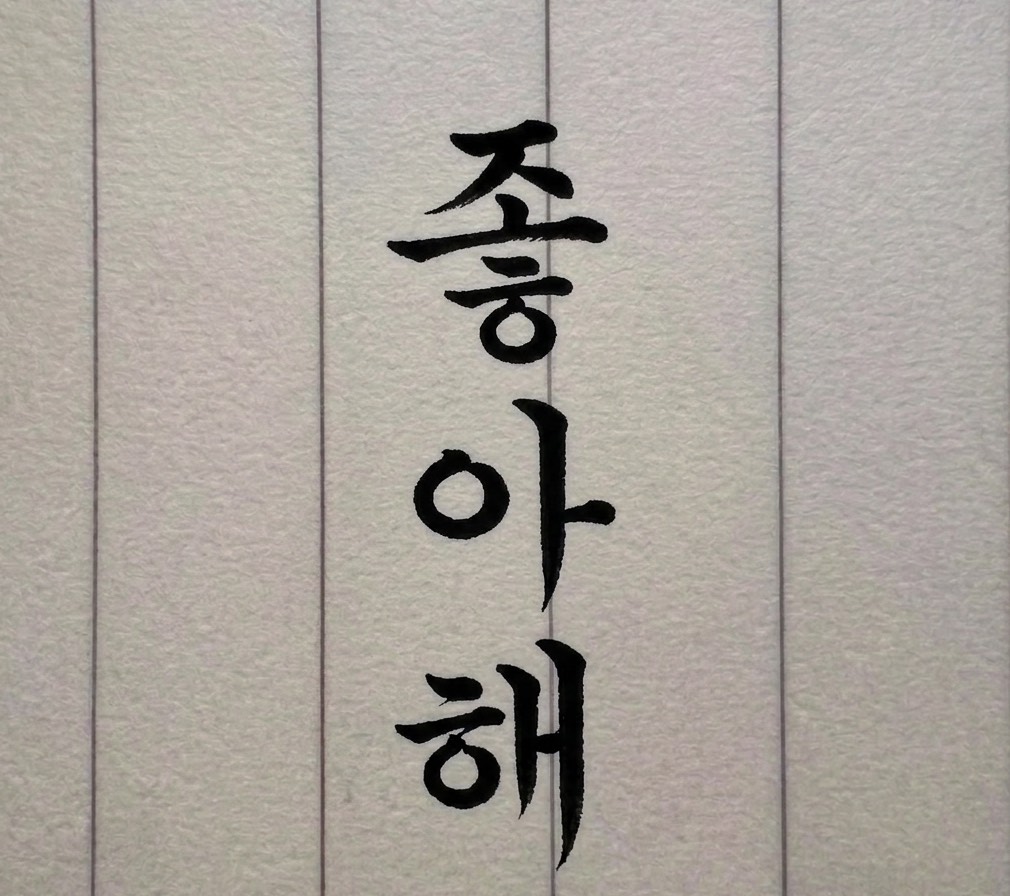 좋아해